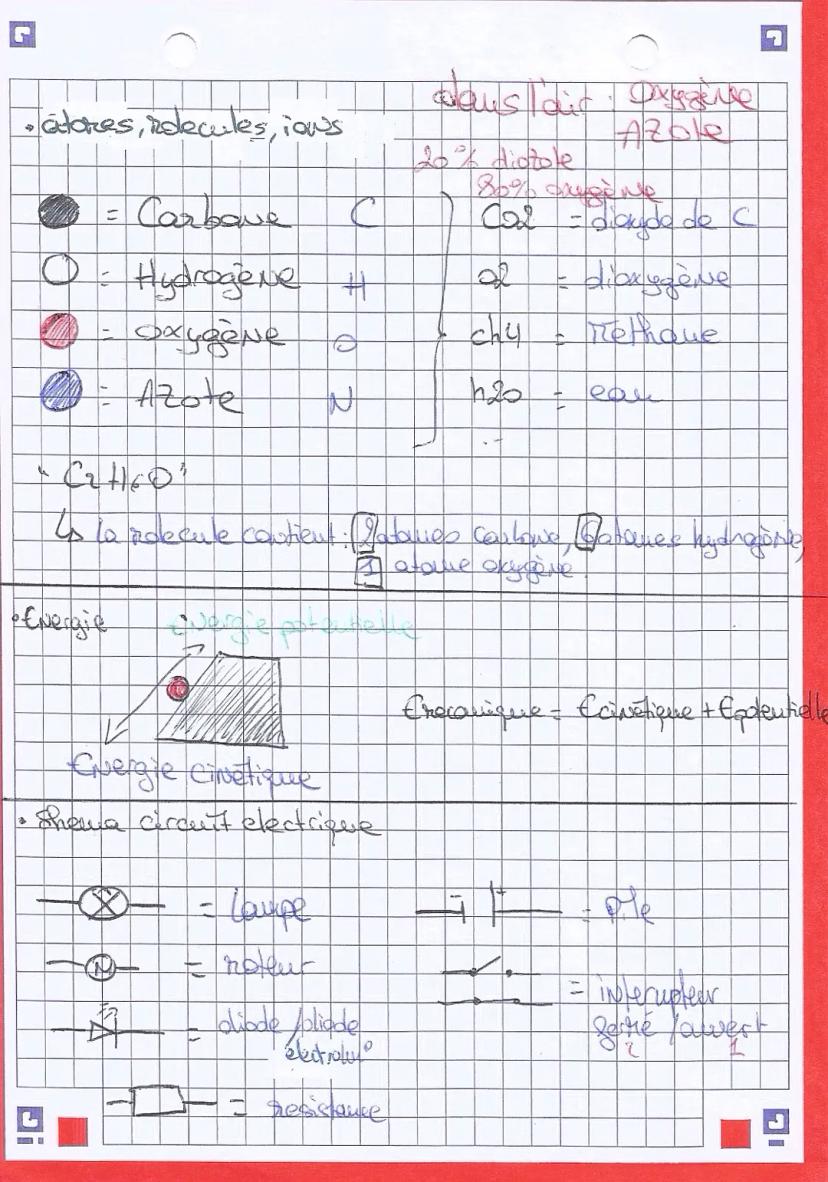 dans l'air : Oxygène
Azote
• atomes, molecules, ions
20% diazote
80% oxygène
= Carbone C
= Hydrogène H
= oxygène O
= Azote N
CO2 = dioxyde de C
o2 = dioxygène
ch4 = Méthane
h2o = eau
"C2H6O"
↳ la molecule contient : 2 atomes carbone, 6 atomes hydrogène,
1 atome oxygène
• Energie
Energie potentielle
Emecanique = Ecinétique + Epotentielle
Energie Cinétique
• Shema circuit electrique
= lampe
= Pile
M = moteur
= interupteur
fermé / ouvert
2 1
= diode / diode
électrolum°
= resistance